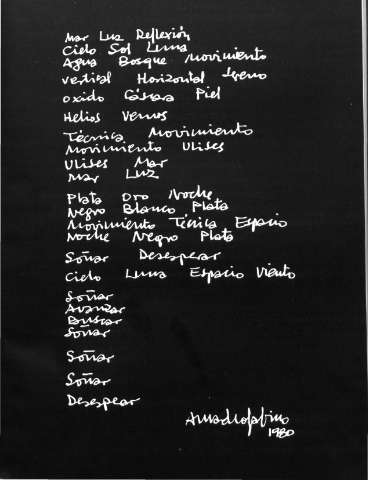 Mar Luz Reflexión
Cielo Sol Luna
Agua Bosque Movimiento
Vertical Horizontal
Oxido Cáscara Piel
Helios Venus
Técnica Movimiento
Movimiento Ulises
Ulises Mar
Mar Luz
Plata Oro Noche
Negro Blanco Plata
Movimiento Técnica Espacio
Noche Negro Plata
Soñar Desesperar
Cielo Luna Espacio Viento
Soñar
Avanzar
Buscar
Soñar
Soñar
Soñar
Desesperar
1980